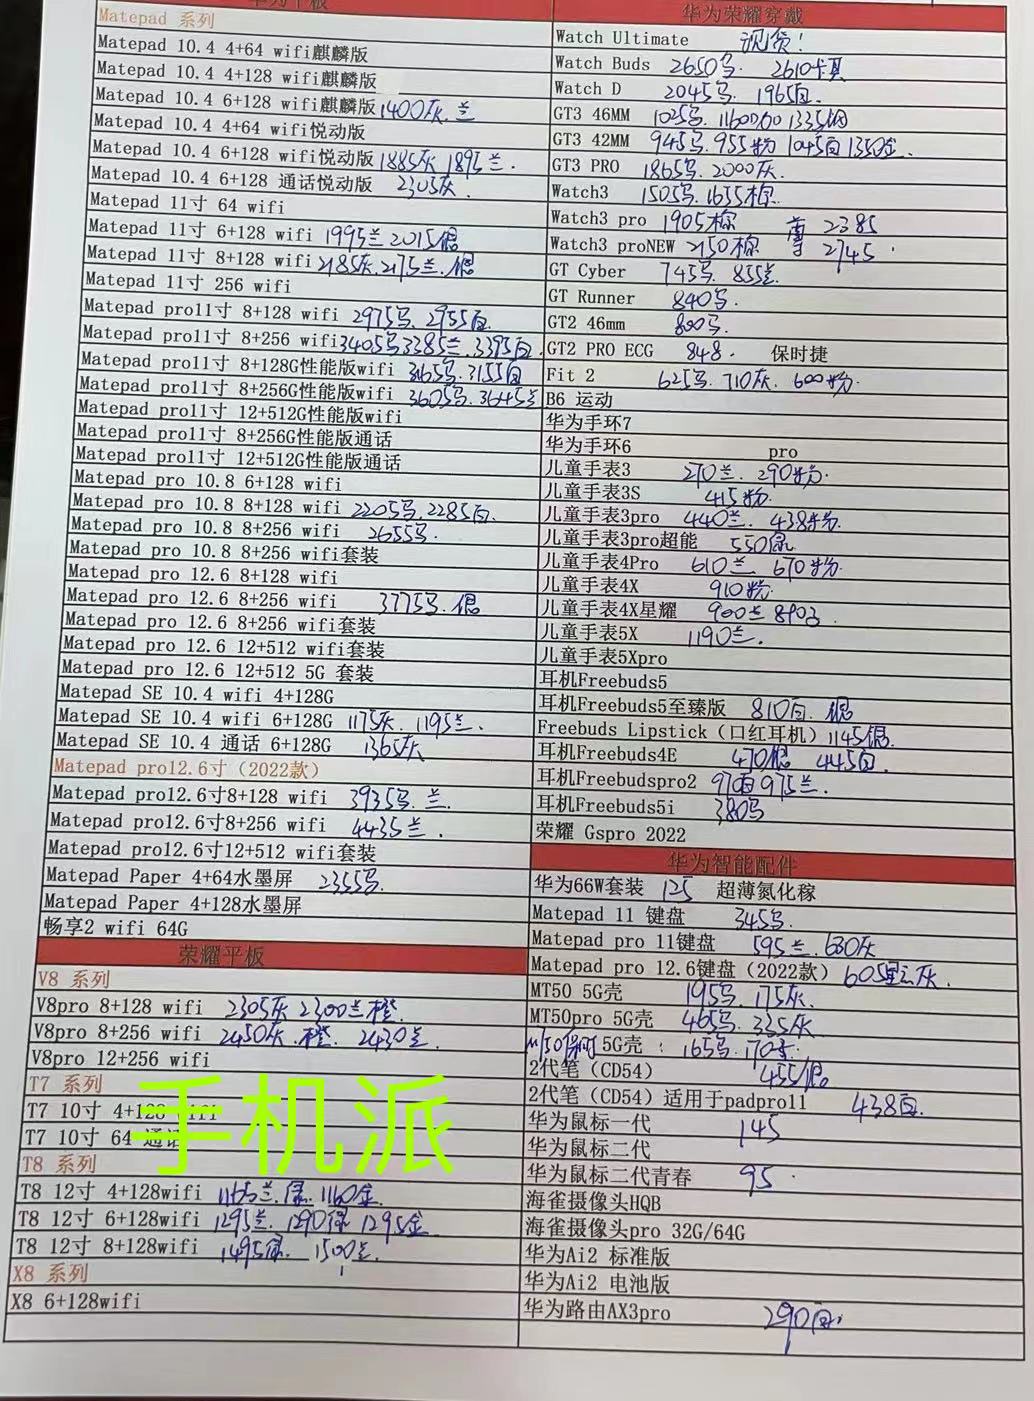 华为平板
Matepad 系列
Matepad 10.4 4+64 wifi麒麟版
Matepad 10.4 4+128 wifi麒麟版
Matepad 10.4 6+128 wifi麒麟版 1400灰.兰
Matepad 10.4 4+64 wifi悦动版
Matepad 10.4 6+128 wifi悦动版 1885灰 1895兰.
Matepad 10.4 6+128 通话悦动版 2305灰.
Matepad 11寸 64 wifi
Matepad 11寸 6+128 wifi 1995兰 2015银
Matepad 11寸 8+128 wifi 2185灰.2175兰.银
Matepad 11寸 256 wifi
Matepad pro11寸 8+128 wifi 2975黑.2955白.
Matepad pro11寸 8+256 wifi 3405黑3385兰.3395白.
Matepad pro11寸 8+128G性能版wifi 3165黑.3155白
Matepad pro11寸 8+256G性能版wifi 3605黑.3645兰
Matepad pro11寸 12+512G性能版wifi
Matepad pro11寸 8+256G性能版通话
Matepad pro11寸 12+512G性能版通话
Matepad pro 10.8 6+128 wifi
Matepad pro 10.8 8+128 wifi 2205黑.2285白.
Matepad pro 10.8 8+256 wifi 2655黑.
Matepad pro 10.8 8+256 wifi套装
Matepad pro 12.6 8+128 wifi
Matepad pro 12.6 8+256 wifi 3775黑.银
Matepad pro 12.6 8+256 wifi套装
Matepad pro 12.6 12+512 wifi套装
Matepad pro 12.6 12+512 5G 套装
Matepad SE 10.4 wifi 4+128G
Matepad SE 10.4 wifi 6+128G 1175灰.1195兰.
Matepad SE 10.4 通话 6+128G 1365灰
Matepad pro12.6寸（2022款）
Matepad pro12.6寸8+128 wifi 3935黑.兰.
Matepad pro12.6寸8+256 wifi 4435兰.
Matepad pro12.6寸12+512 wifi套装
Matepad Paper 4+64水墨屏 2355黑.
Matepad Paper 4+128水墨屏
畅享2 wifi 64G
荣耀平板
V8 系列
V8pro 8+128 wifi 2305灰 2300兰橙.
V8pro 8+256 wifi 2450灰.橙. 2430兰.
V8pro 12+256 wifi
T7 系列
T7 10寸 4+128 wifi
T7 10寸 64 通话
T8 系列
T8 12寸 4+128wifi 1165兰.绿.1160金.
T8 12寸 6+128wifi 1295兰.1290绿 1295金
T8 12寸 8+128wifi 1495绿. 1500兰.
X8 系列
X8 6+128wifi
手机派
华为荣耀穿戴
Watch Ultimate 现货！
Watch Buds 2650黑. 2610卡其
Watch D 2045黑. 1965白.
GT3 46MM 1025黑.
GT3 42MM 945黑.955粉 1045白1350金.
GT3 PRO 1865黑.2000灰.
Watch3 1505黑.1655棕.
Watch3 pro 1905棕 尊 2385
Watch3 proNEW 2150棕 享 2745
GT Cyber 745黑.855兰.
GT Runner 840黑.
GT2 46mm 800黑.
GT2 PRO ECG 848. 保时捷
Fit 2 625黑.710灰.600粉.
B6 运动
华为手环7
华为手环6 pro
儿童手表3 270兰.290粉.
儿童手表3S 415粉.
儿童手表3pro 440兰. 438粉.
儿童手表3pro超能 550绿
儿童手表4Pro 610兰 670粉.
儿童手表4X 910粉.
儿童手表4X星耀 900兰 890黑.
儿童手表5X 1190兰.
儿童手表5Xpro
耳机Freebuds5
耳机Freebuds5至臻版 810白.银
Freebuds Lipstick（口红耳机）1145银.
耳机Freebuds4E 470银 445白.
耳机Freebudspro2 970白975兰.
耳机Freebuds5i 380黑
荣耀 Gspro 2022
华为智能配件
华为66W套装 125 超薄氮化稼
Matepad 11 键盘 345黑.
Matepad pro 11键盘 595兰.630灰
Matepad pro 12.6键盘（2022款） 605黑灰.
MT50 5G壳 195黑.175灰.
MT50pro 5G壳 465黑.335灰
M50保时 5G壳： 165黑.170
2代笔（CD54） 455银
2代笔（CD54）适用于padpro11 438白.
华为鼠标一代 145
华为鼠标二代
华为鼠标二代青春 95.
海雀摄像头HQB
海雀摄像头pro 32G/64G
华为Ai2 标准版
华为Ai2 电池版
华为路由AX3pro 290白.